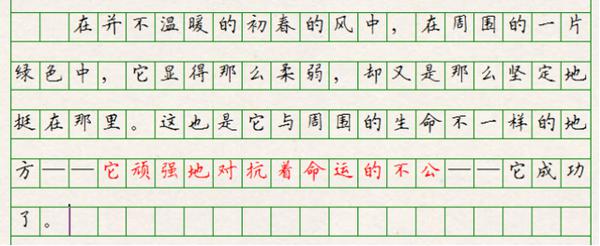 在并不温暖的初春的风中，在周围的一片
绿色中，它显得那么柔弱，却又是那么坚定地
挺在那里。这也是它与周围的生命不一样的地
方——它顽强地对抗着命运的不公——它成功
了。